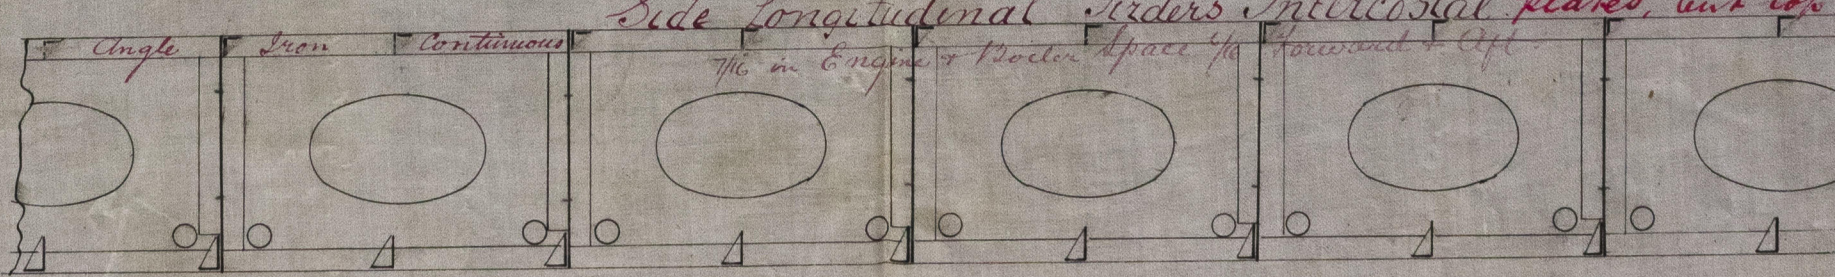 Side Longitudinal Girders Intercostal plates, but top
Angle Iron Continuous
7/16 in Engine & Boiler Space 6/16 Forward & Aft.